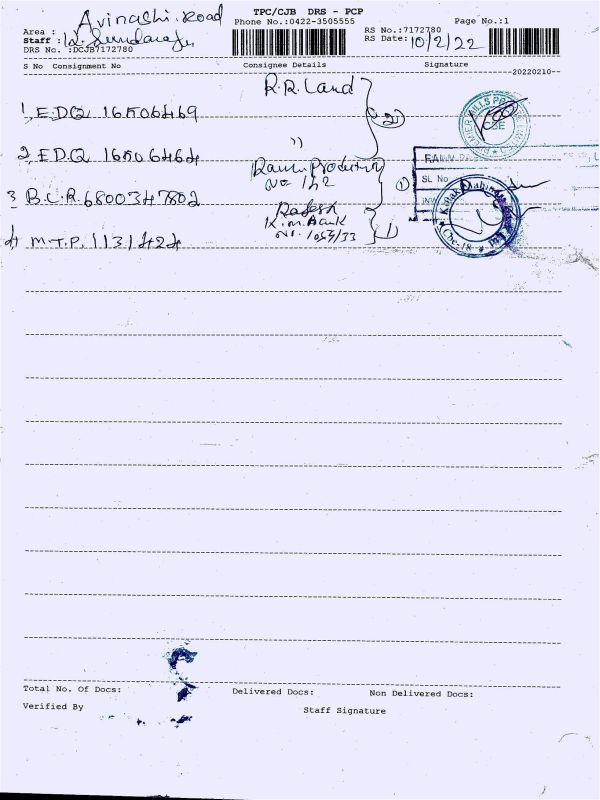 TPC/CJB DRS - PCP
Phone No.:0422-3505555
Page No.:1
Area : Avinashi.Road
Staff :
DRS No. :DCJB7172780
RS No.:7172780
RS Date: 10/2/22
S No Consignment No Consignee Details Signature
--20220210--
R.R.Land
1, E.D.Q 16506469
(2)
2, E.D.Q 16506464 ))
No 142
3 B.C.R. 6800347802 (1)
Rajesh
K.M.Bank
4 M.T.P. 1131424 No. 1053/33 (1)
SL No
Kotak Mahindra
Cbe-18
Total No. Of Docs: Delivered Docs: Non Delivered Docs:
Verified By Staff Signature